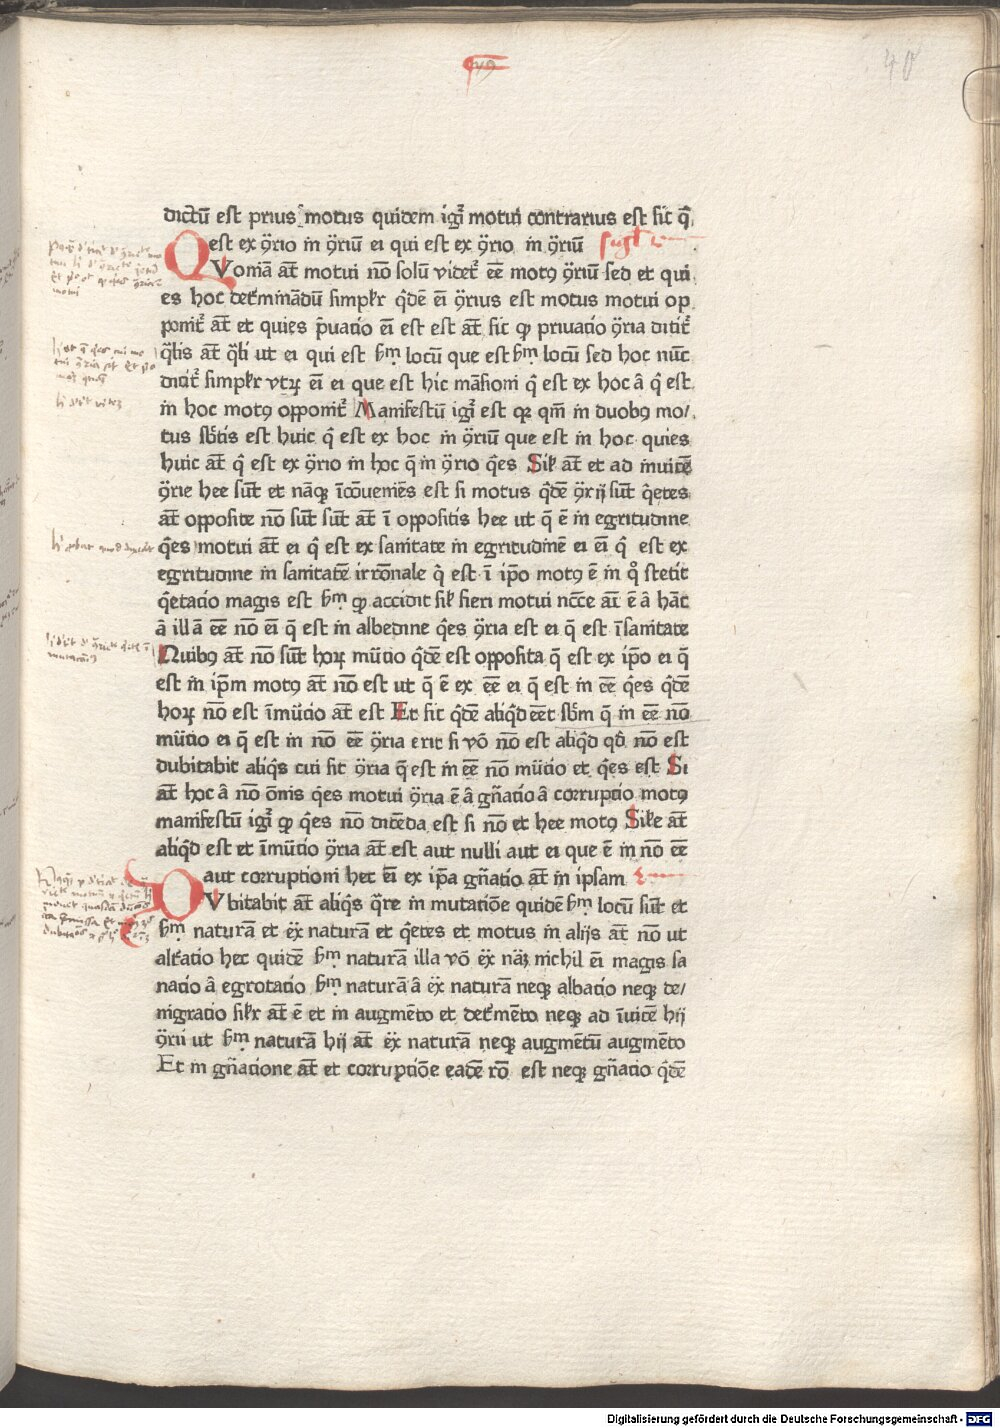 40
dictū est prius motus quidem igit̄ motui contrarius est sic q̄
est ex ꝯrio in ꝯriū ei qui est ex ꝯrio in ꝯriū
QVoniā at̄ motui nō solū videt̄ eē motꝰ ꝯriū sed et qui
es hoc det̄minādū simplr̄ qd̄ē ei ꝯrius est motus motui op
ponit̄ at̄ et quies p̄uatio eī est est at̄ sic ꝙ priuatio ꝯria dicit̄
q̄lis at̄ q̄li ut ei qui est ẜm locū que est ẜm locū sed hoc nūc
dicit̄ simplr̄ vtꝝ eī ei que est hic māsioni q̄ est ex hoc ā q̄ est
in hoc motꝰ opponit̄ Manifestū igit̄ est qꝛ qm̄ in duobꝰ mo/
tus sb̄ctis est huic q̄ est ex hoc in ꝯriū que est in hoc quies
huic at̄ q̄ est ex ꝯrio in hoc q̄ in ꝯrio q̄es Silr̄ at̄ et ad inuicē
ꝯrie hee sūt et nāqꝫ īcōueniēs est si motus qd̄ē ꝯrij sūt q̄etes
at̄ opposite nō sūt sūt at̄ ī oppositis hee ut q̄ ē in egritudine
q̄es motui at̄ ei q̄ est ex sanitate in egritudinē ei eī q̄ est ex
egritudine in sanitatē irrōnale q̄ est ī ip̄o motꝰ ē in q̊ stetit
q̄etatio magis est ẜm ꝙ accidit silr̄ fieri motui nc̄ce at̄ ē ā hāc
ā illā eē nō eī q̄ est in albedine q̄es ꝯria est ei q̄ est ī sanitate
Quibꝰ at̄ nō sūt horꝝ mūtio qd̄ē est opposita q̄ est ex ip̄o ei q̄
est in ip̄m motꝰ at̄ nō est ut q̄ ē ex eē ei q̄ est in eē q̄es qd̄ē
horꝝ nō est īmūtio at̄ est Et sic qd̄ē aliqd̄ eēt sb̄m q̄ in eē nō
mūtio ei q̄ est in nō eē ꝯria erit si vō nō est aliqd̄ qd̄ nō est
dubitabit aliq̄s cui sit ꝯria q̄ est in eē nō mūtio et q̄es est Si
at̄ hoc ā nō ōnis q̄es motui ꝯria ē ā gn̄atio ā corruptio motꝰ
manifestū igit̄ ꝙ q̄es nō dicēda est si nō et hee motꝰ Sile at̄
aliqd̄ est et īmūtio ꝯria at̄ est aut nulli aut ei que ē in nō eē
aut corruptioni hec eī ex ip̄a gn̄atio at̄ in ipsam
DVbitabit at̄ aliq̄s q̄re in mutatiōe quidē ẜm locū sūt et
ẜm naturā et ex̄ naturā et q̄etes et motus in alijs at̄ nō ut
alt̄atio hec quidē ẜm naturā illa vō ex̄ nāꝫ nichil eī magis sa
natio ā egrotatio ẜm naturā ā ex̄ naturā neqꝫ albatio neqꝫ de/
nigratio silr̄ at̄ ē et in augmēto et det̄mēto neqꝫ ad īuicē hij
ꝯrij ut ẜm naturā hij at̄ ex̄ naturā neqꝫ augmētū augmēto
Et in gn̄acione at̄ et corruptiōe eadē rō est neqꝫ gn̄atio qd̄ē
Digitalisierung gefördert durch die Deutsche Forschungsgemeinschaft - DFG